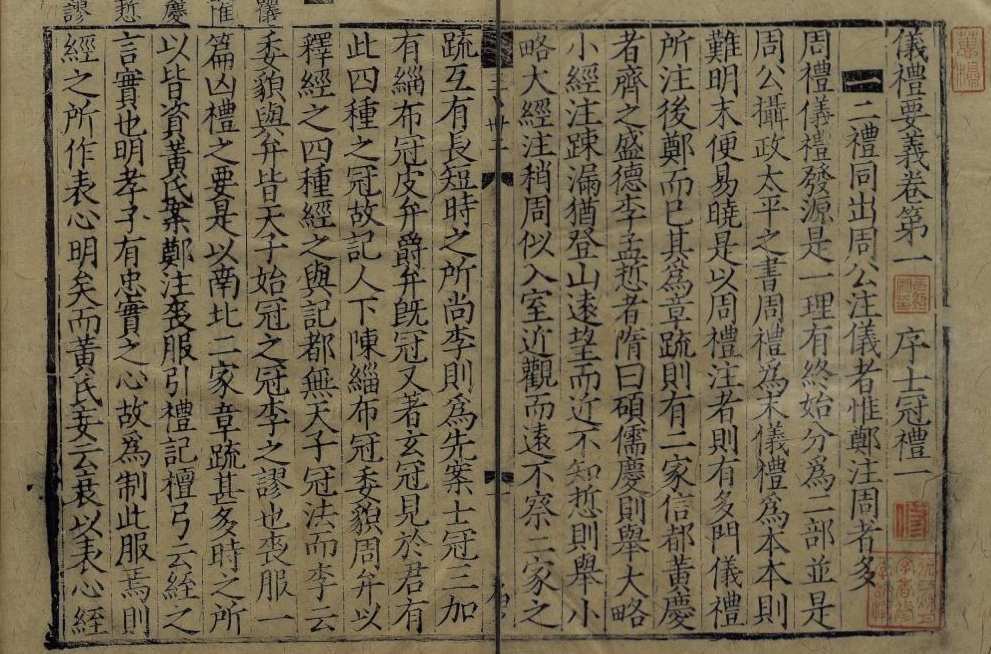 儀禮要義卷第一　序士冠禮一
一　二禮同出周公注儀者惟鄭注周者多
周禮儀禮發源是一理有終始分為二部並是
周公攝政太平之書周禮為末儀禮為本本則
難明末便易曉是以周禮注者則有多門儀禮
所注後鄭而已其為章疏則有二家信都黃慶
者齊之盛德李孟悊者隋曰碩儒慶則舉大略
小經注踈漏猶登山遠望而近不知悊則舉小
略大經注稍周似入室近觀而遠不察二家之
疏互有長短時之所尚李則為先案士冠三加
有緇布冠皮弁爵弁旣冠又著玄冠見於君有
此四種之冠故記人下陳緇布冠委貌周弁以
釋經之四種經之與記都無天子冠法而李云
委貌與弁皆天子始冠之冠李之謬也喪服一
篇凶禮之要是以南北二家章疏甚多時之所
以皆資黃氏案鄭注喪服引禮記檀弓云絰之
言實也明孝子有忠實之心故為制此服焉則
經之所作表心明矣而黃氏妄云衰以表心絰